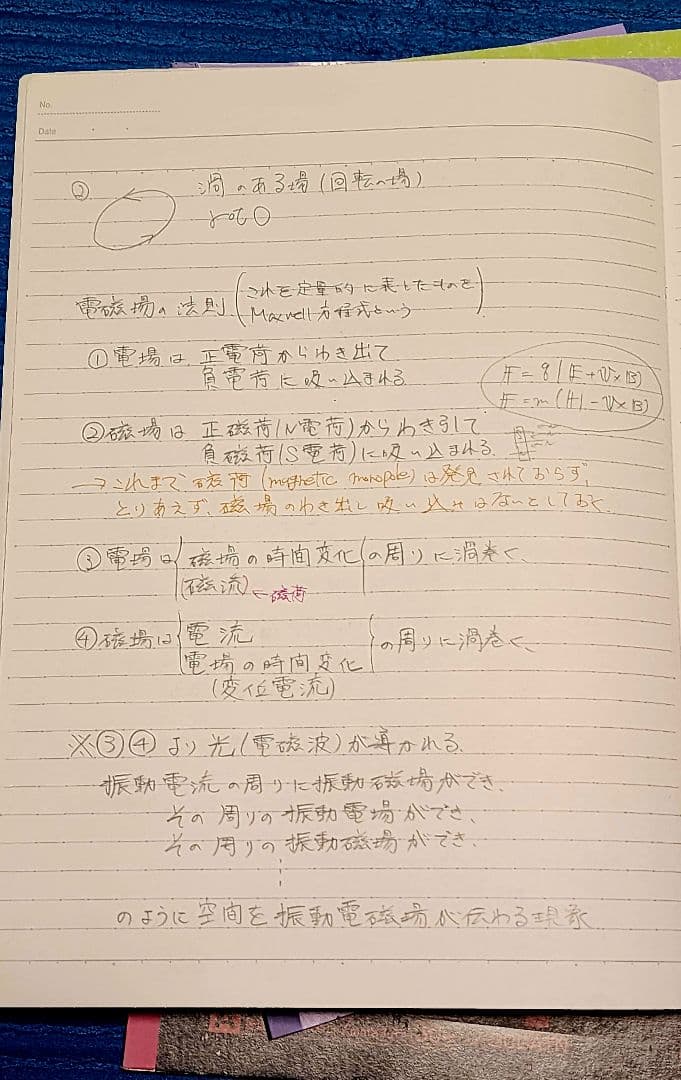 No.
Date
② 渦のある場(回転の場)
rot
電磁場の法則(これを定量的に表したものを
Maxwell方程式という)
①電場は 正電荷からわき出て
負電荷に吸い込まれる
F = q(E + v×B)
F = m(H - v×B)
②磁場は 正磁荷(N電荷)からわき引して
負磁荷(S電荷)に吸い込まれる.
→これまで磁荷(magnetic monopole)は発見されておらず,
とりあえず、磁場のわき出し吸い込みはないとしておく.
③電場は{磁場の時間変化}の周りに渦巻く、
(磁流)←磁荷
④磁場は{電流
電場の時間変化}の周りに渦巻く、
(変位電流)
※③④より光(電磁波)が導かれる.
振動電流の周りに振動磁場ができ、
その周りの振動電場ができ、
その周りの振動磁場ができ、
のように空間を振動電磁場が伝わる現象